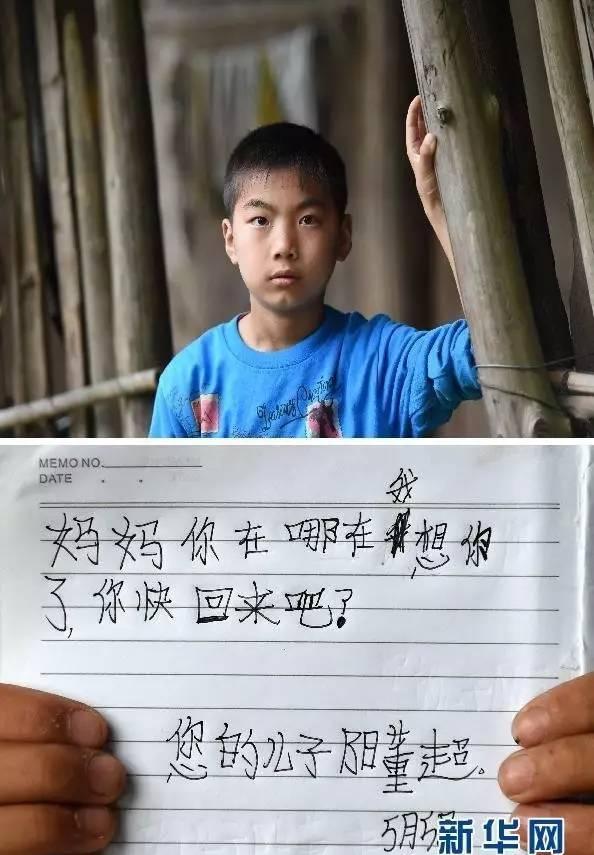 MEMO NO.
DATE . .
妈妈你在哪在我想你
了,你快回来吧?
您的儿子阳董超。
5月5
新华网